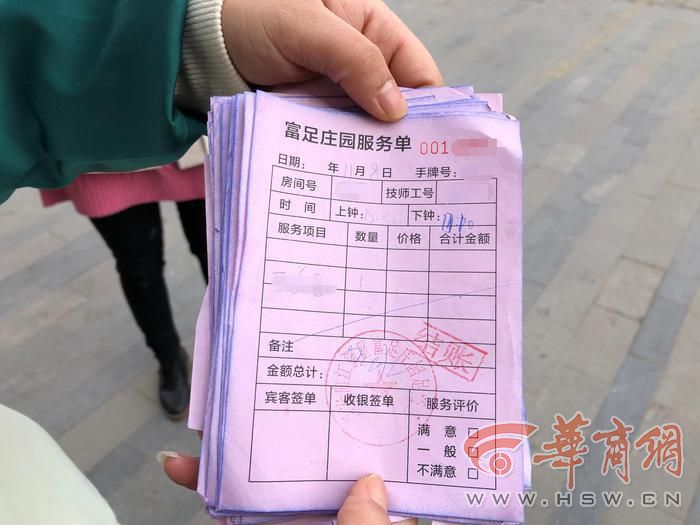 富足庄园服务单 001
日期： 年 11 月 8 日 手牌号：
房间号 技师工号
时 间 上钟： 下钟：
服务项目 数量 价格 合计金额
1
备注
结账
金额总计：
宾客签单 收银签单 服务评价
满 意 □
一 般 □
不满意 □
華商網
WWW.HSW.CN